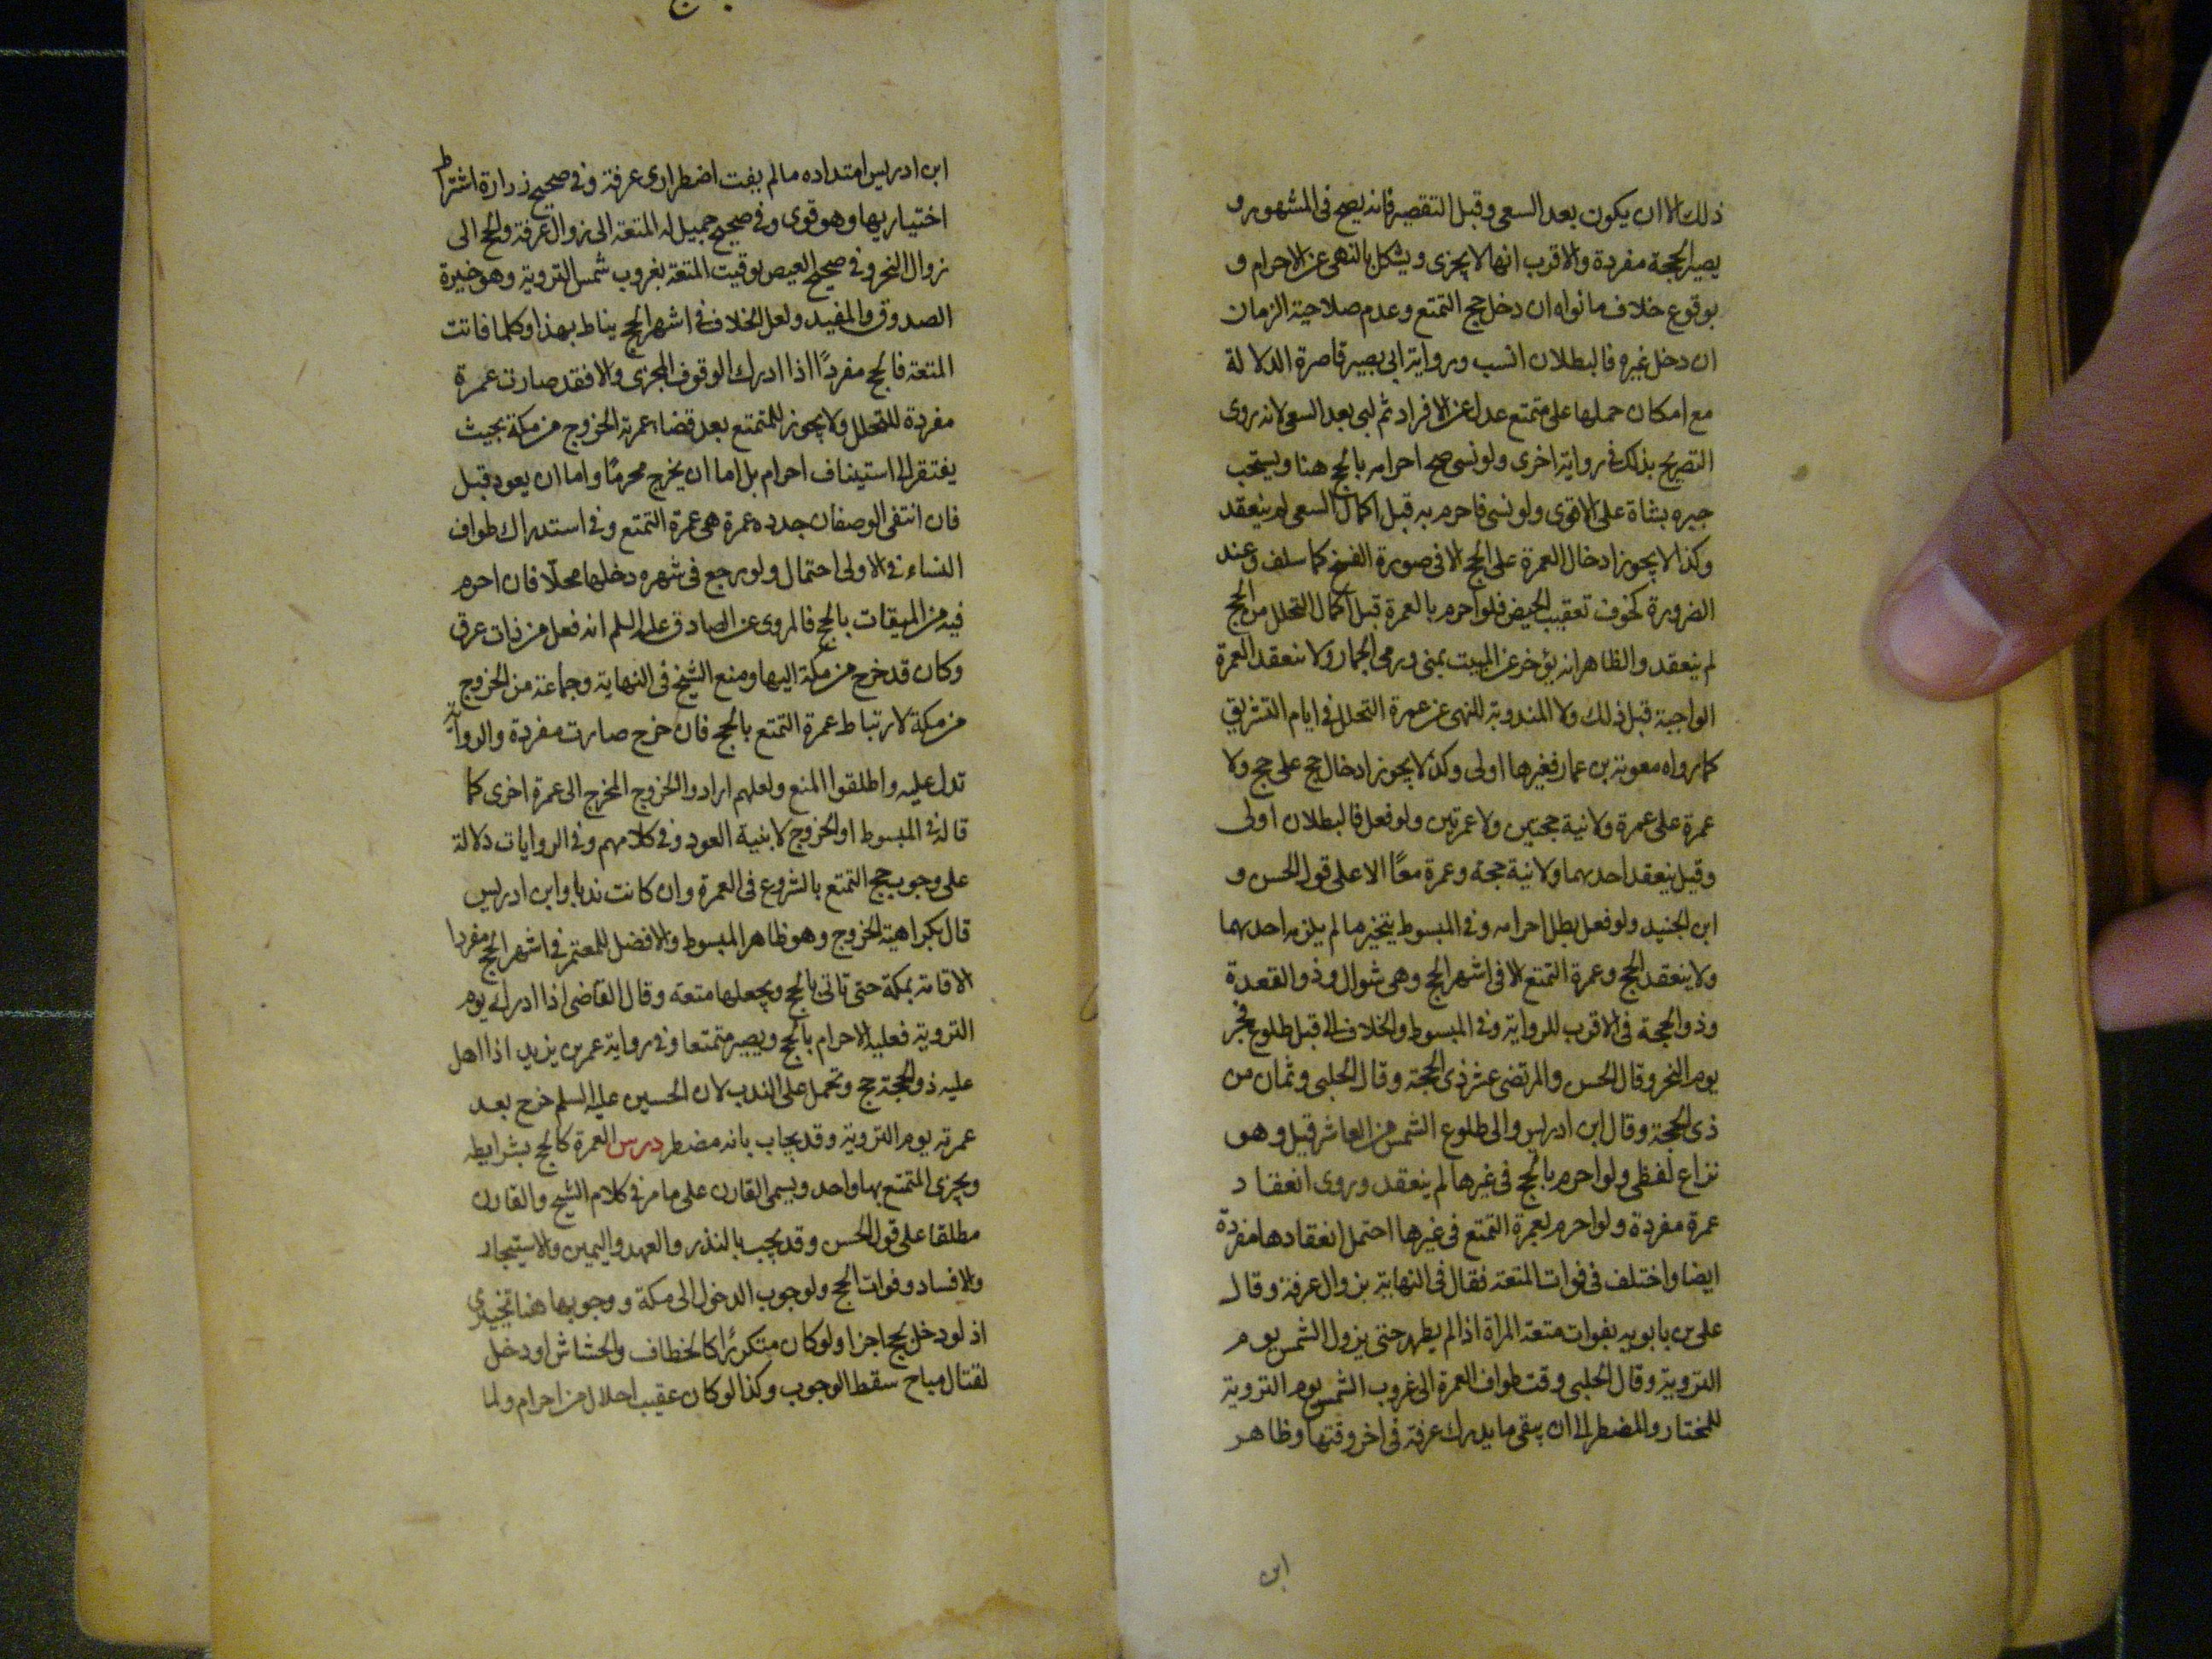 ذلك الا ان يكون بعد السعى وقبل التقصير فانه يصح فى المشهور و
يصير الحجة مفردة والاقرب انها لا يجزى ويشكل بالنهى عن الاحرام و
بوقوع خلاف ما نواه ان دخل حج التمتع وعدم صلاحية الزمان
ان دخل غيره فالبطلان انسب ورواية ابى بصير قاصرة الدلالة
مع امكان حملها على متمتع عدل عن الافراد ثم لبى بعد السعى لانه روى
التصريح بذلك فى رواية اخرى ولو نسى صح احرامه بالحج هنا ويستحب
جبره بشاة على الاقوى ولو نسى فاحرم به قبل اكمال السعى لم ينعقد
وكذا لا يجوز ادخال العمرة على الحج الا فى صورة الفسخ كما سلف وعند
الضرورة كخوف تعقيب الحيض فلو احرم بالعمرة قبل اكمال التحلل من الحج
لم ينعقد والظاهر انه يؤخر عن المبيت بمنى ورمى الجمار ولا ينعقد العمرة
الواجبة قبل ذلك ولا المندوبة للنهى عن عمرة التحلل فى ايام التشريق
كما رواه معوية بن عمار فغيرها اولى وكذا لا يجوز ادخال حج على حج ولا
عمرة على عمرة ولا نية حجتين ولا عمرتين ولو فعل فالبطلان اولى
وقيل ينعقد احديهما ولا نية حجة وعمرة معًا الا على قول الحسن و
ابن الجنيد ولو فعل بطل احرامه وفى المبسوط يتخير ما لم يلزمه احديهما
ولا ينعقد الحج وعمرة التمتع الا فى اشهر الحج وهى شوال وذو القعدة
وذو الحجة فى الاقرب للرواية وفى المبسوط والخلاف الى قبل طلوع فجر
يوم النحر وقال الحسن والمرتضى عشر ذى الحجة وقال الحلبى وثمان من
ذى الحجة وقال ابن ادريس والى طلوع الشمس من العاشر قيل وهو
نزاع لفظى ولو احرم بالحج فى غيرها لم ينعقد وروى انعقاد
عمرة مفردة ولو احرم بعمرة التمتع فى غيرها احتمل انعقادها مفردة
ايضا واختلف فى فوات المتعة فقال فى النهاية بزوال عرفة وقال
على بن بابويه بفوات متعة المراة اذا لم يطهر حتى يزول الشمس يوم
التروية وقال الحلبى وقت طواف العمرة الى غروب الشمس يوم التروية
للمختار وللمضطر الى ان يبقى ما يدرك عرفة فى اخر وقتها وظاهر
ابن
ابن ادريس امتداده ما لم يفت اضطرارى عرفة وفى صحيح زرارة اشتراط
اختياريها وهو قوى وفى صحيح جميل له المتعة الى زوال عرفة والحج الى
زوال النحر وفى صحيح العيص توقيت المتعة بغروب شمس التروية وهو خيرة
الصدوق والمفيد ولعل الخلاف فى اشهر الحج يناط بهذا وكلما فاتت
المتعة فالحج مفردًا اذا ادرك الوقوف المجزى والا فقد صارت عمرة
مفردة للتحلل ولا يجوز للمتمتع بعد قضاء عمرته الخروج من مكة بحيث
يفتقر الى استيناف احرام بل اما ان يخرج محرمًا واما ان يعود قبل
فان انتفى الوصفان جدد عمرة هى عمرة التمتع وفى استدراك طواف
النساء فى الاولى احتمال ولو رجع فى شهره دخلها محلًا فان احرم
فيه من الميقات بالحج فالمروى عن الصادق عليه السلم انه فعل من ذات عرق
وكان قد خرج من مكة اليها ومنع الشيخ فى النهاية وجماعة من الخروج
من مكة لارتباط عمرة التمتع بالحج فان خرج صارت مفردة والرواية
تدل عليه واطلقوا المنع ولعلهم ارادوا الخروج المخرج الى عمرة اخرى كما
قاله فى المبسوط او الخروج لا بنية العود وفى كلامهم وفى الروايات دلالة
على وجوب حج التمتع بالشروع فى العمرة وان كانت ندبا وابن ادريس
قال بكراهية الخروج وهو ظاهر المبسوط والافضل للمعتمر فى اشهر الحج مفردا
الاقامة بمكة حتى تاتى بالحج ويجعلها متعة وقال القاضى اذا ادرك يوم
التروية فعليه الاحرام بالحج ويصير متمتعا وفى رواية عمر بن يزيد اذا اهل
عليه ذو الحجة حج وتحمل على الندب لان الحسين عليه السلم خرج بعد
عمرته يوم التروية وقد يجاب بانه مضطر درس العمرة كالحج بشرايطه
ويجزى المتمتع بها واحد ويسمى القارن على ما مر فى كلام الشيخ والقارن
مطلقا على قول الحسن وقد يجب بالنذر والعهد واليمين والاستيجار
والافساد وفوات الحج ولوجوب الدخول الى مكة ووجوبها هنا تخييرى
اذ لو دخل بحج اجزا ولو كان متكررًا كالحطاب والحشاش او دخل
لقتال مباح سقط الوجوب وكذا لو كان عقيب احلال من احرام ولما